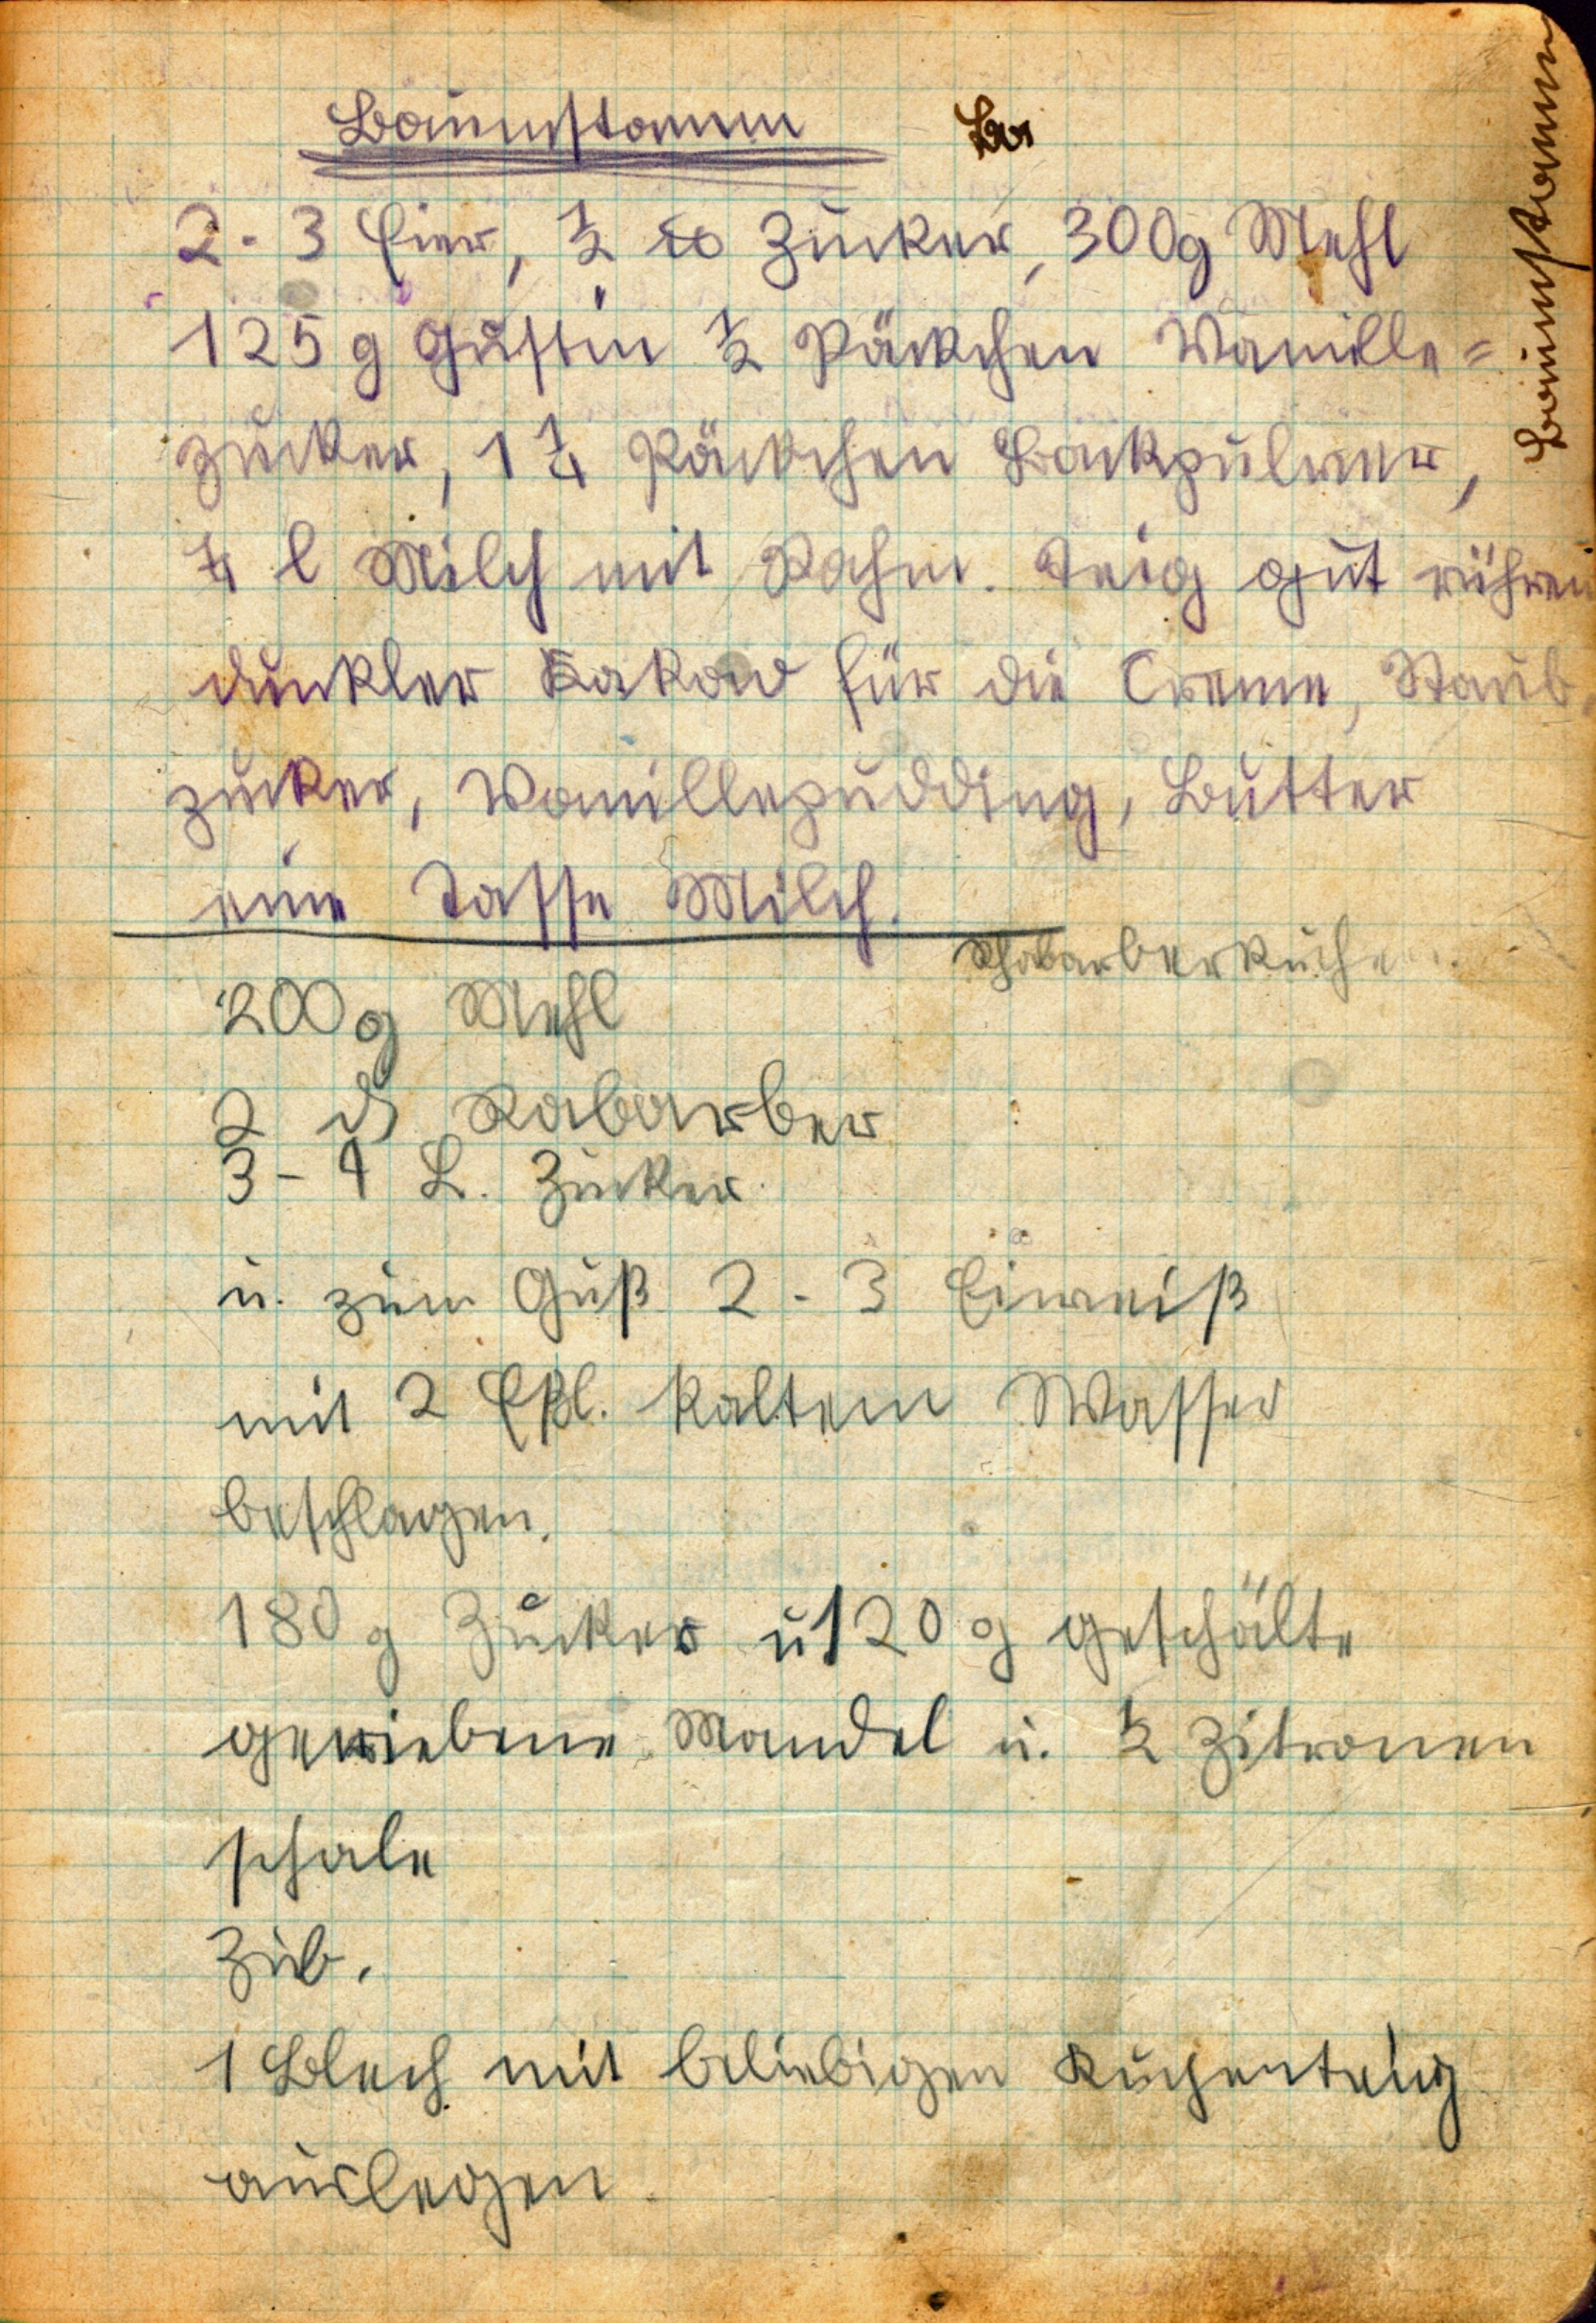 Baumstamm Ba
Baumstamm
2 - 3 Eier, 1/2 ℔ Zucker, 300g Mehl
125 g Gustin 1/2 Päckchen Wanille=
zucker, 1 1/4 Päckchen Backpulver,
1/4 l Milch mit Rahm. Teig gut rühren
dunkler Kakow für die Creme, Staub
zucker, Vanillepudding, Butter
eine Tasse Milch.
Rhabarberkuchen.
200g Mehl
2 ℔ Rabarber
3 - 4 L. Zucker
u. zum Guß 2 - 3 Eiweiß
mit 2 Eßl. kaltem Wasser
beschlagen.
180 g Zucker u 120 g geschälte
geriebene Mandel u. 1/2 Zitronen
schale
Zub.
1 Blech mit beliebigen Kuchenteig
auslegen